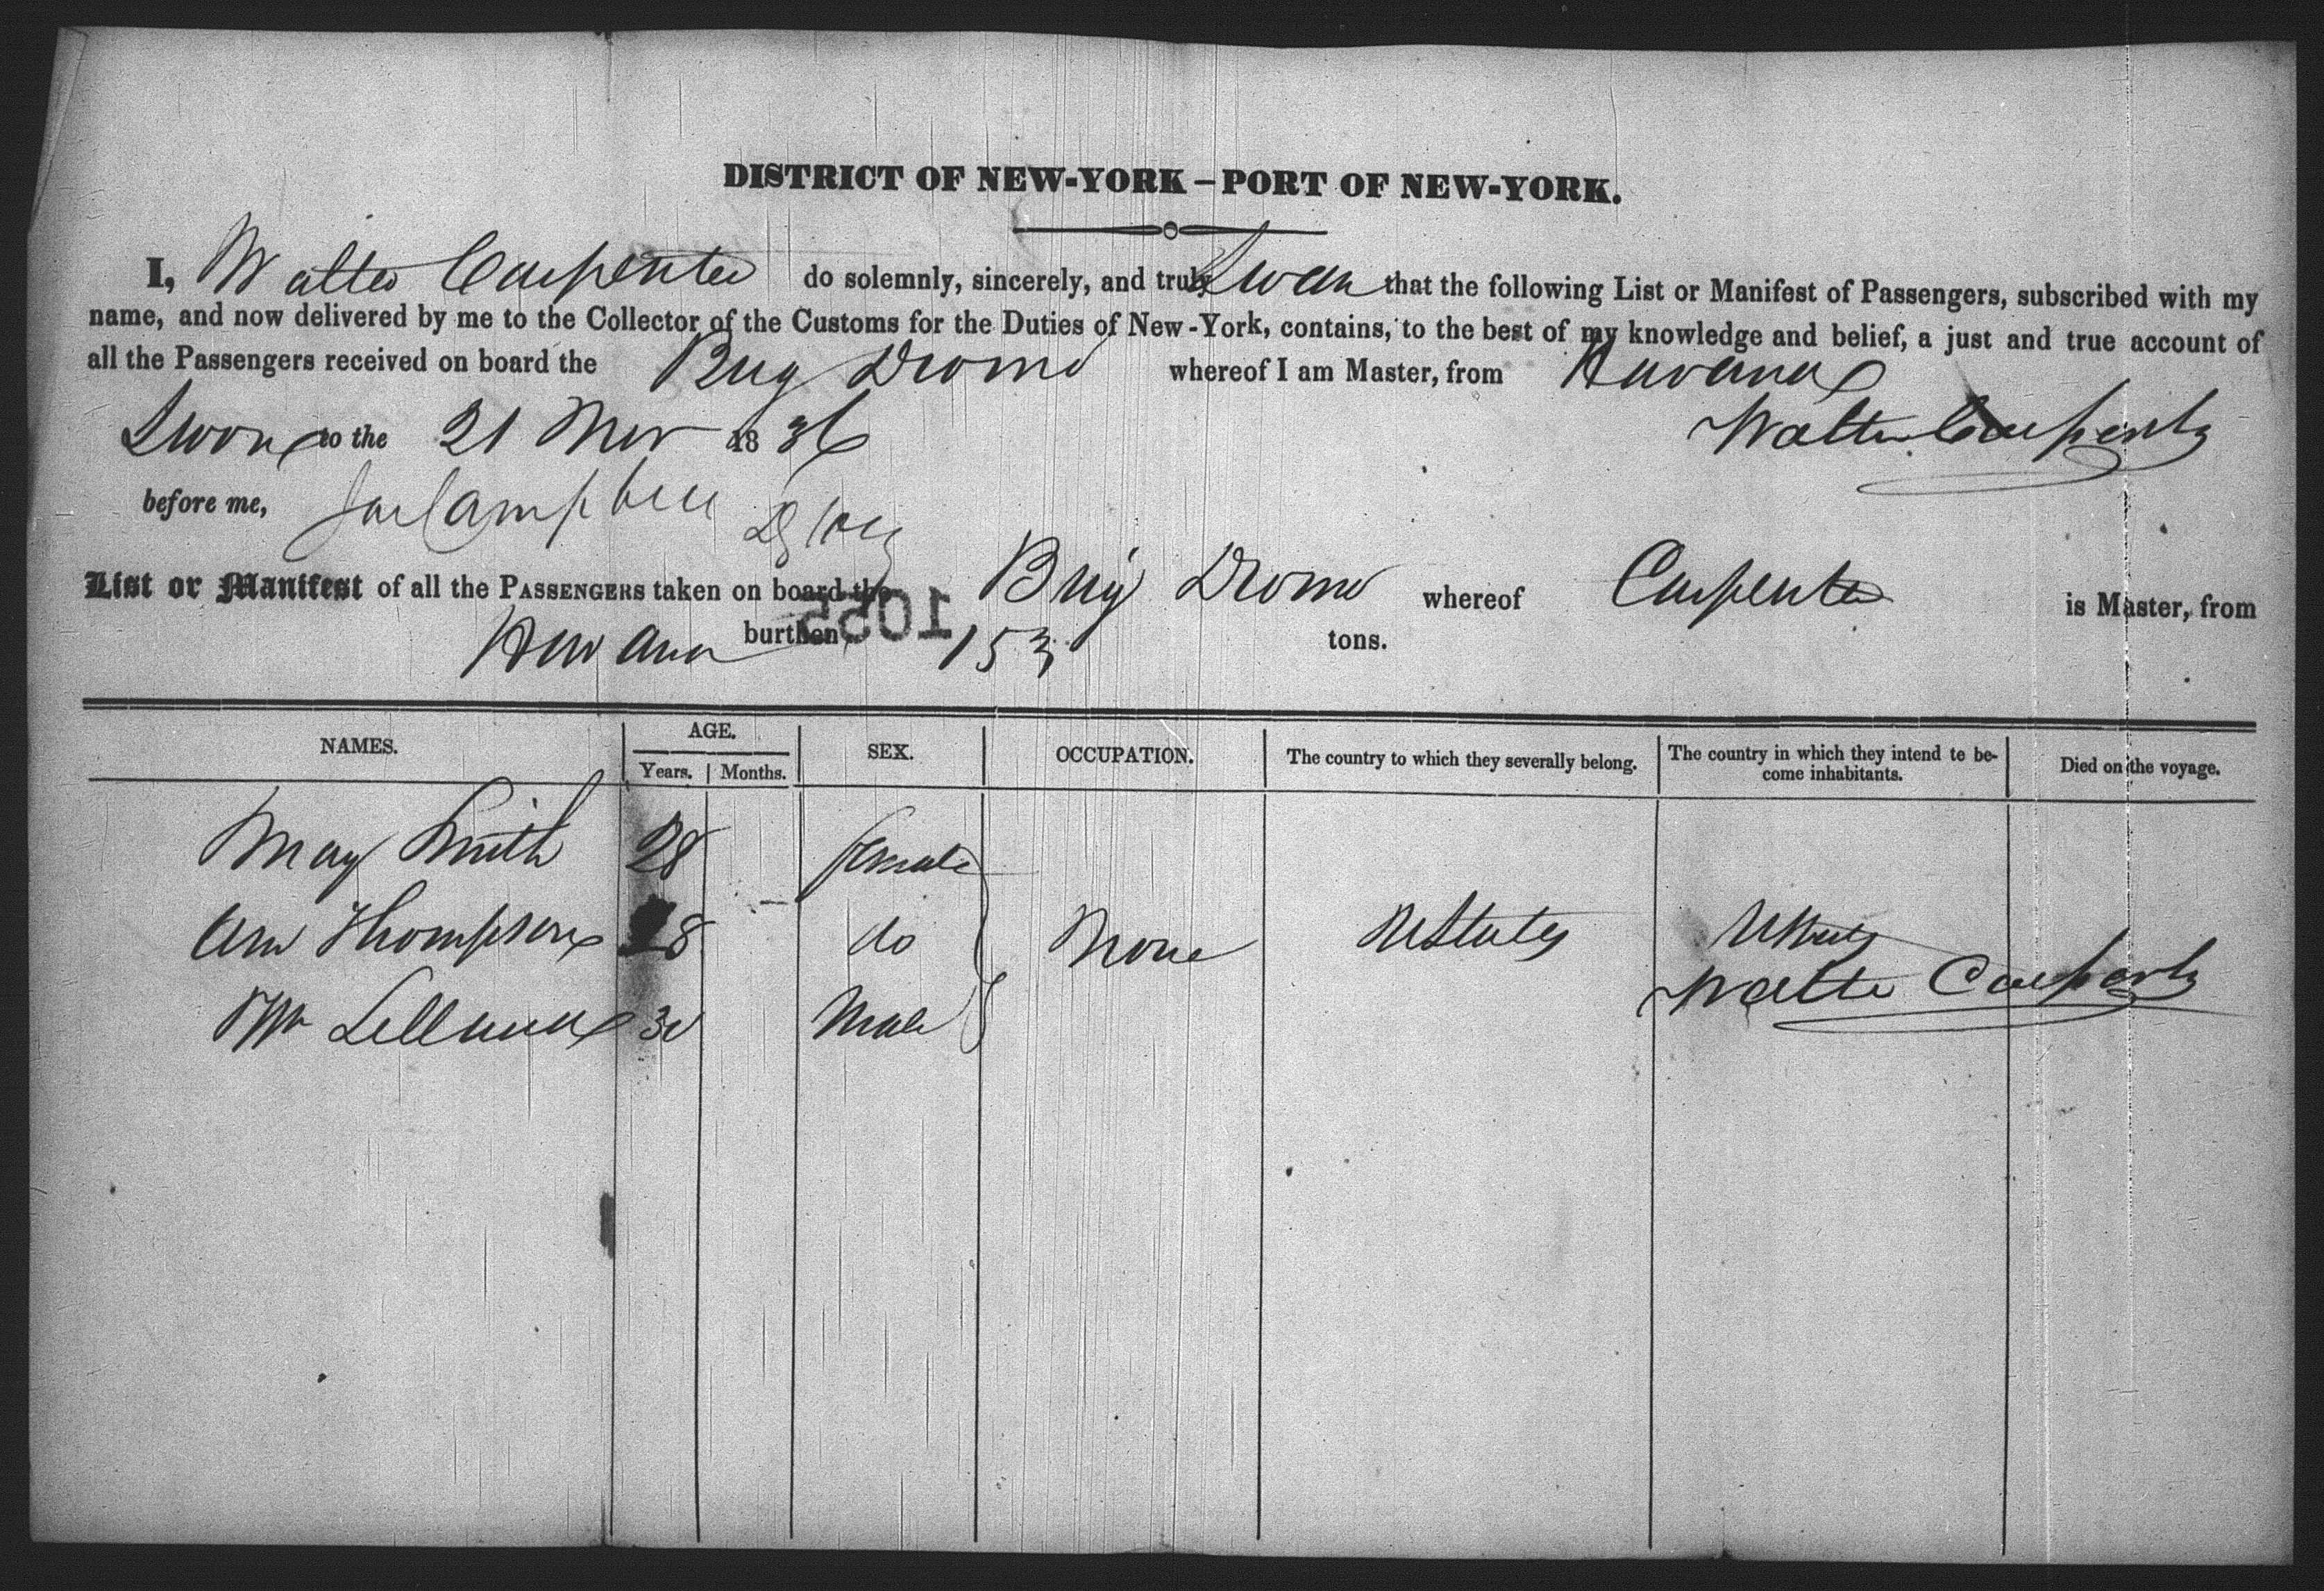 DISTRICT OF NEW-YORK – PORT OF NEW-YORK.
I, Walter Carpenter do solemnly, sincerely, and truly Swear that the following List or Manifest of Passengers, subscribed with my
name, and now delivered by me to the Collector of the Customs for the Duties of New-York, contains, to the best of my knowledge and belief, a just and true account of
all the Passengers received on board the Brig Dromo whereof I am Master, from Havana
Sworn to the 21 Nov 1836 Walter Carpenter
before me, Campbell
List or Manifest of all the PASSENGERS taken on board the Brig Dromo whereof Carpenter is Master, from
Havana burthen 153 tons.
1055
NAMES. AGE. Years. Months. SEX. OCCUPATION. The country to which they severally belong. The country in which they intend te become inhabitants. Died on the voyage.
Mary Smith 28 female
Ann Thompson 28 do None UStates UStates
Walter Carpenter
Wm 30 Male